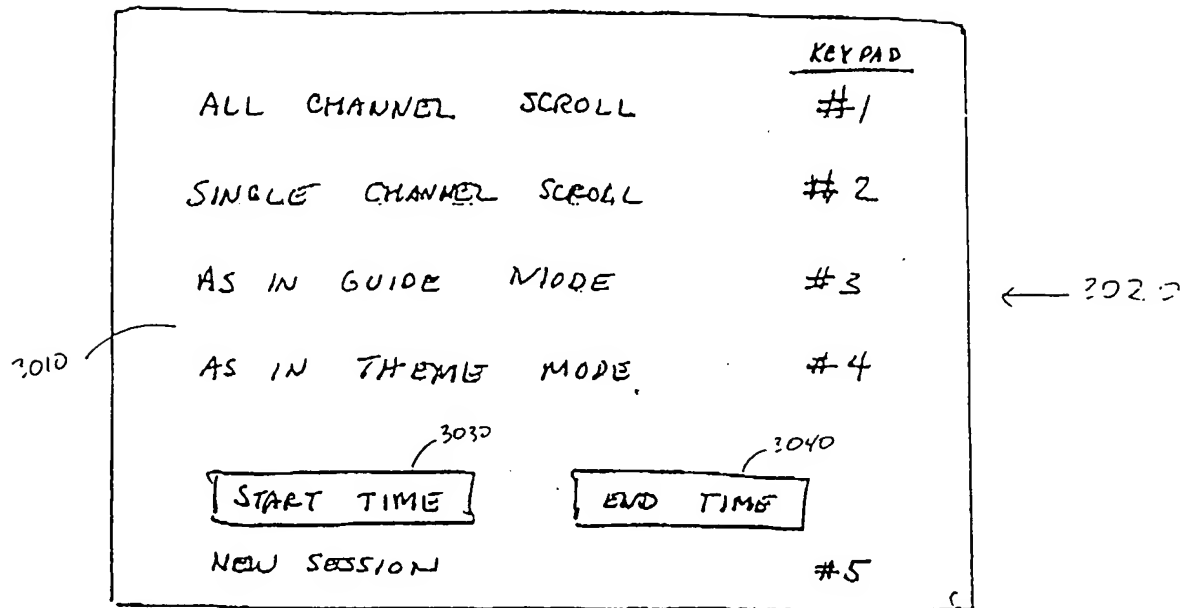 KEYPAD
ALL CHANNEL SCROLL #1
SINGLE CHANNEL SCROLL #2
AS IN GUIDE MODE #3
3020
3010
AS IN THEME MODE. #4
3030 3040
START TIME END TIME
NEW SESSION #5